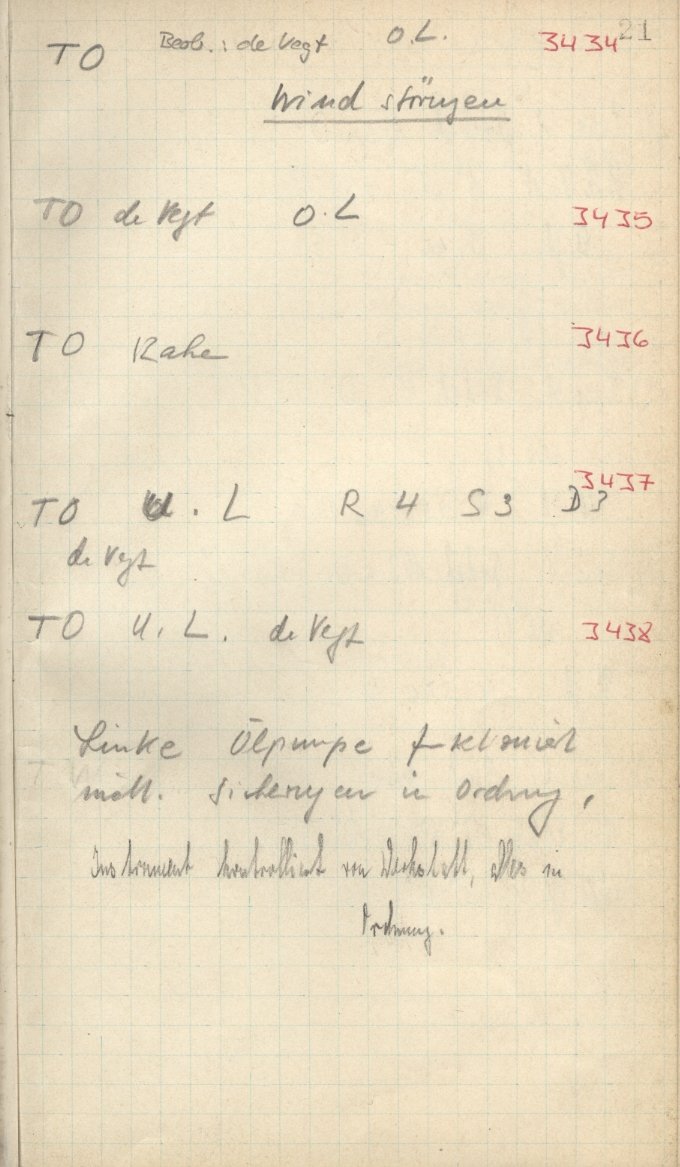 21
TO Beob.: de Vegt O.L. 3434
Wind störungen
TO de Vegt O.L 3435
TO Rahe 3436
3437
TO U.L R 4 S 3 D 3
de Vegt
TO U.L. de Vegt 3438
Linke Ölpumpe funktioniert
nicht. Sicherungen in Ordnung,
Instrument kontrolliert von Werkstatt, alles in
Ordnung.